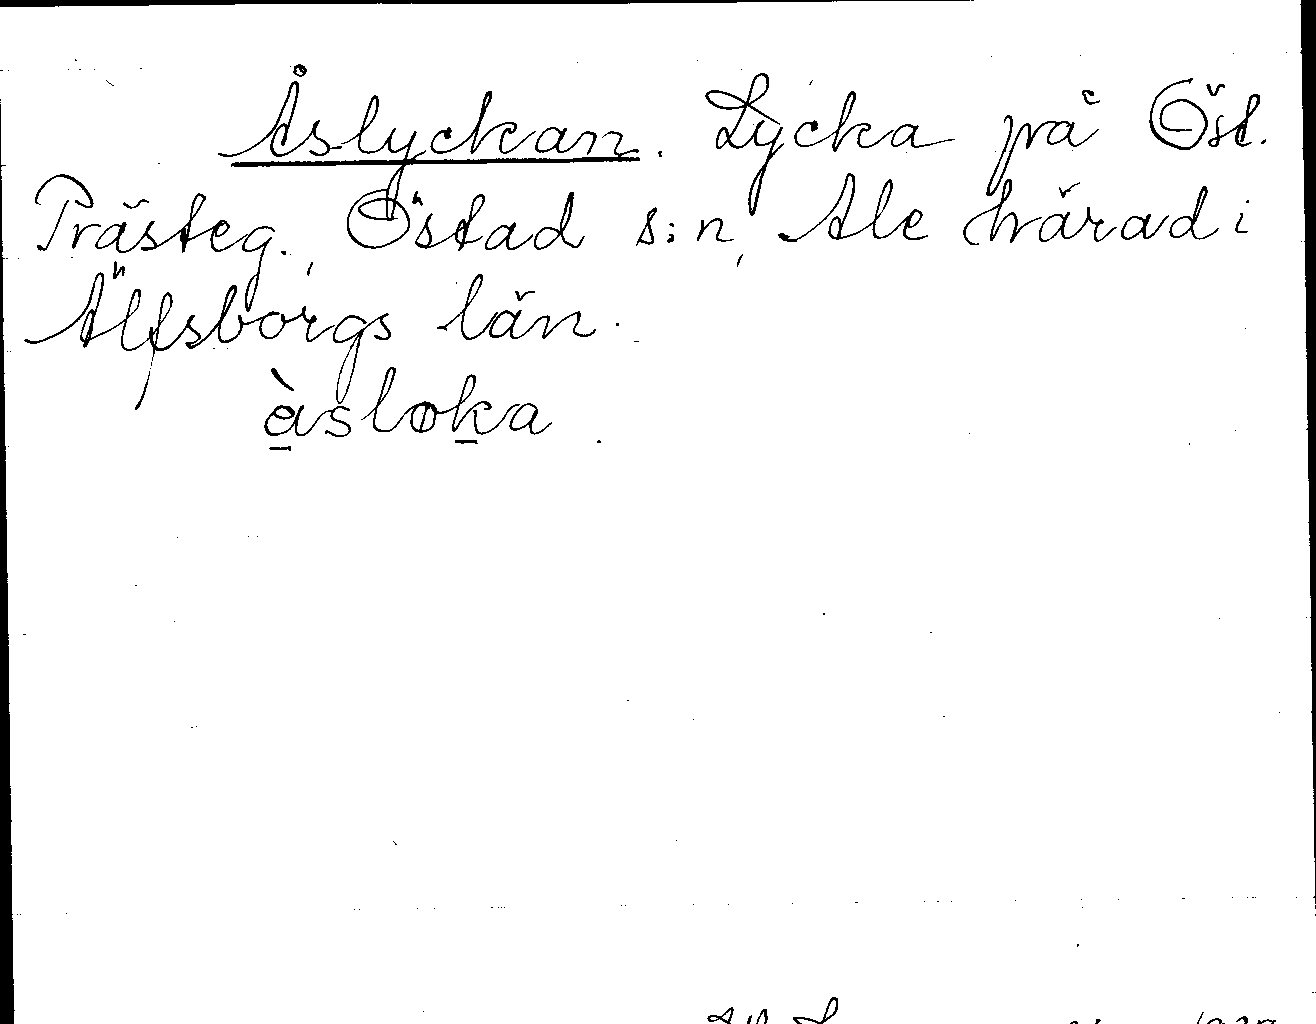 Åslyckan. Lycka på Öst.
Prästeg., Östad s:n, Ale härad i
Älfsborgs län.
àsloka.